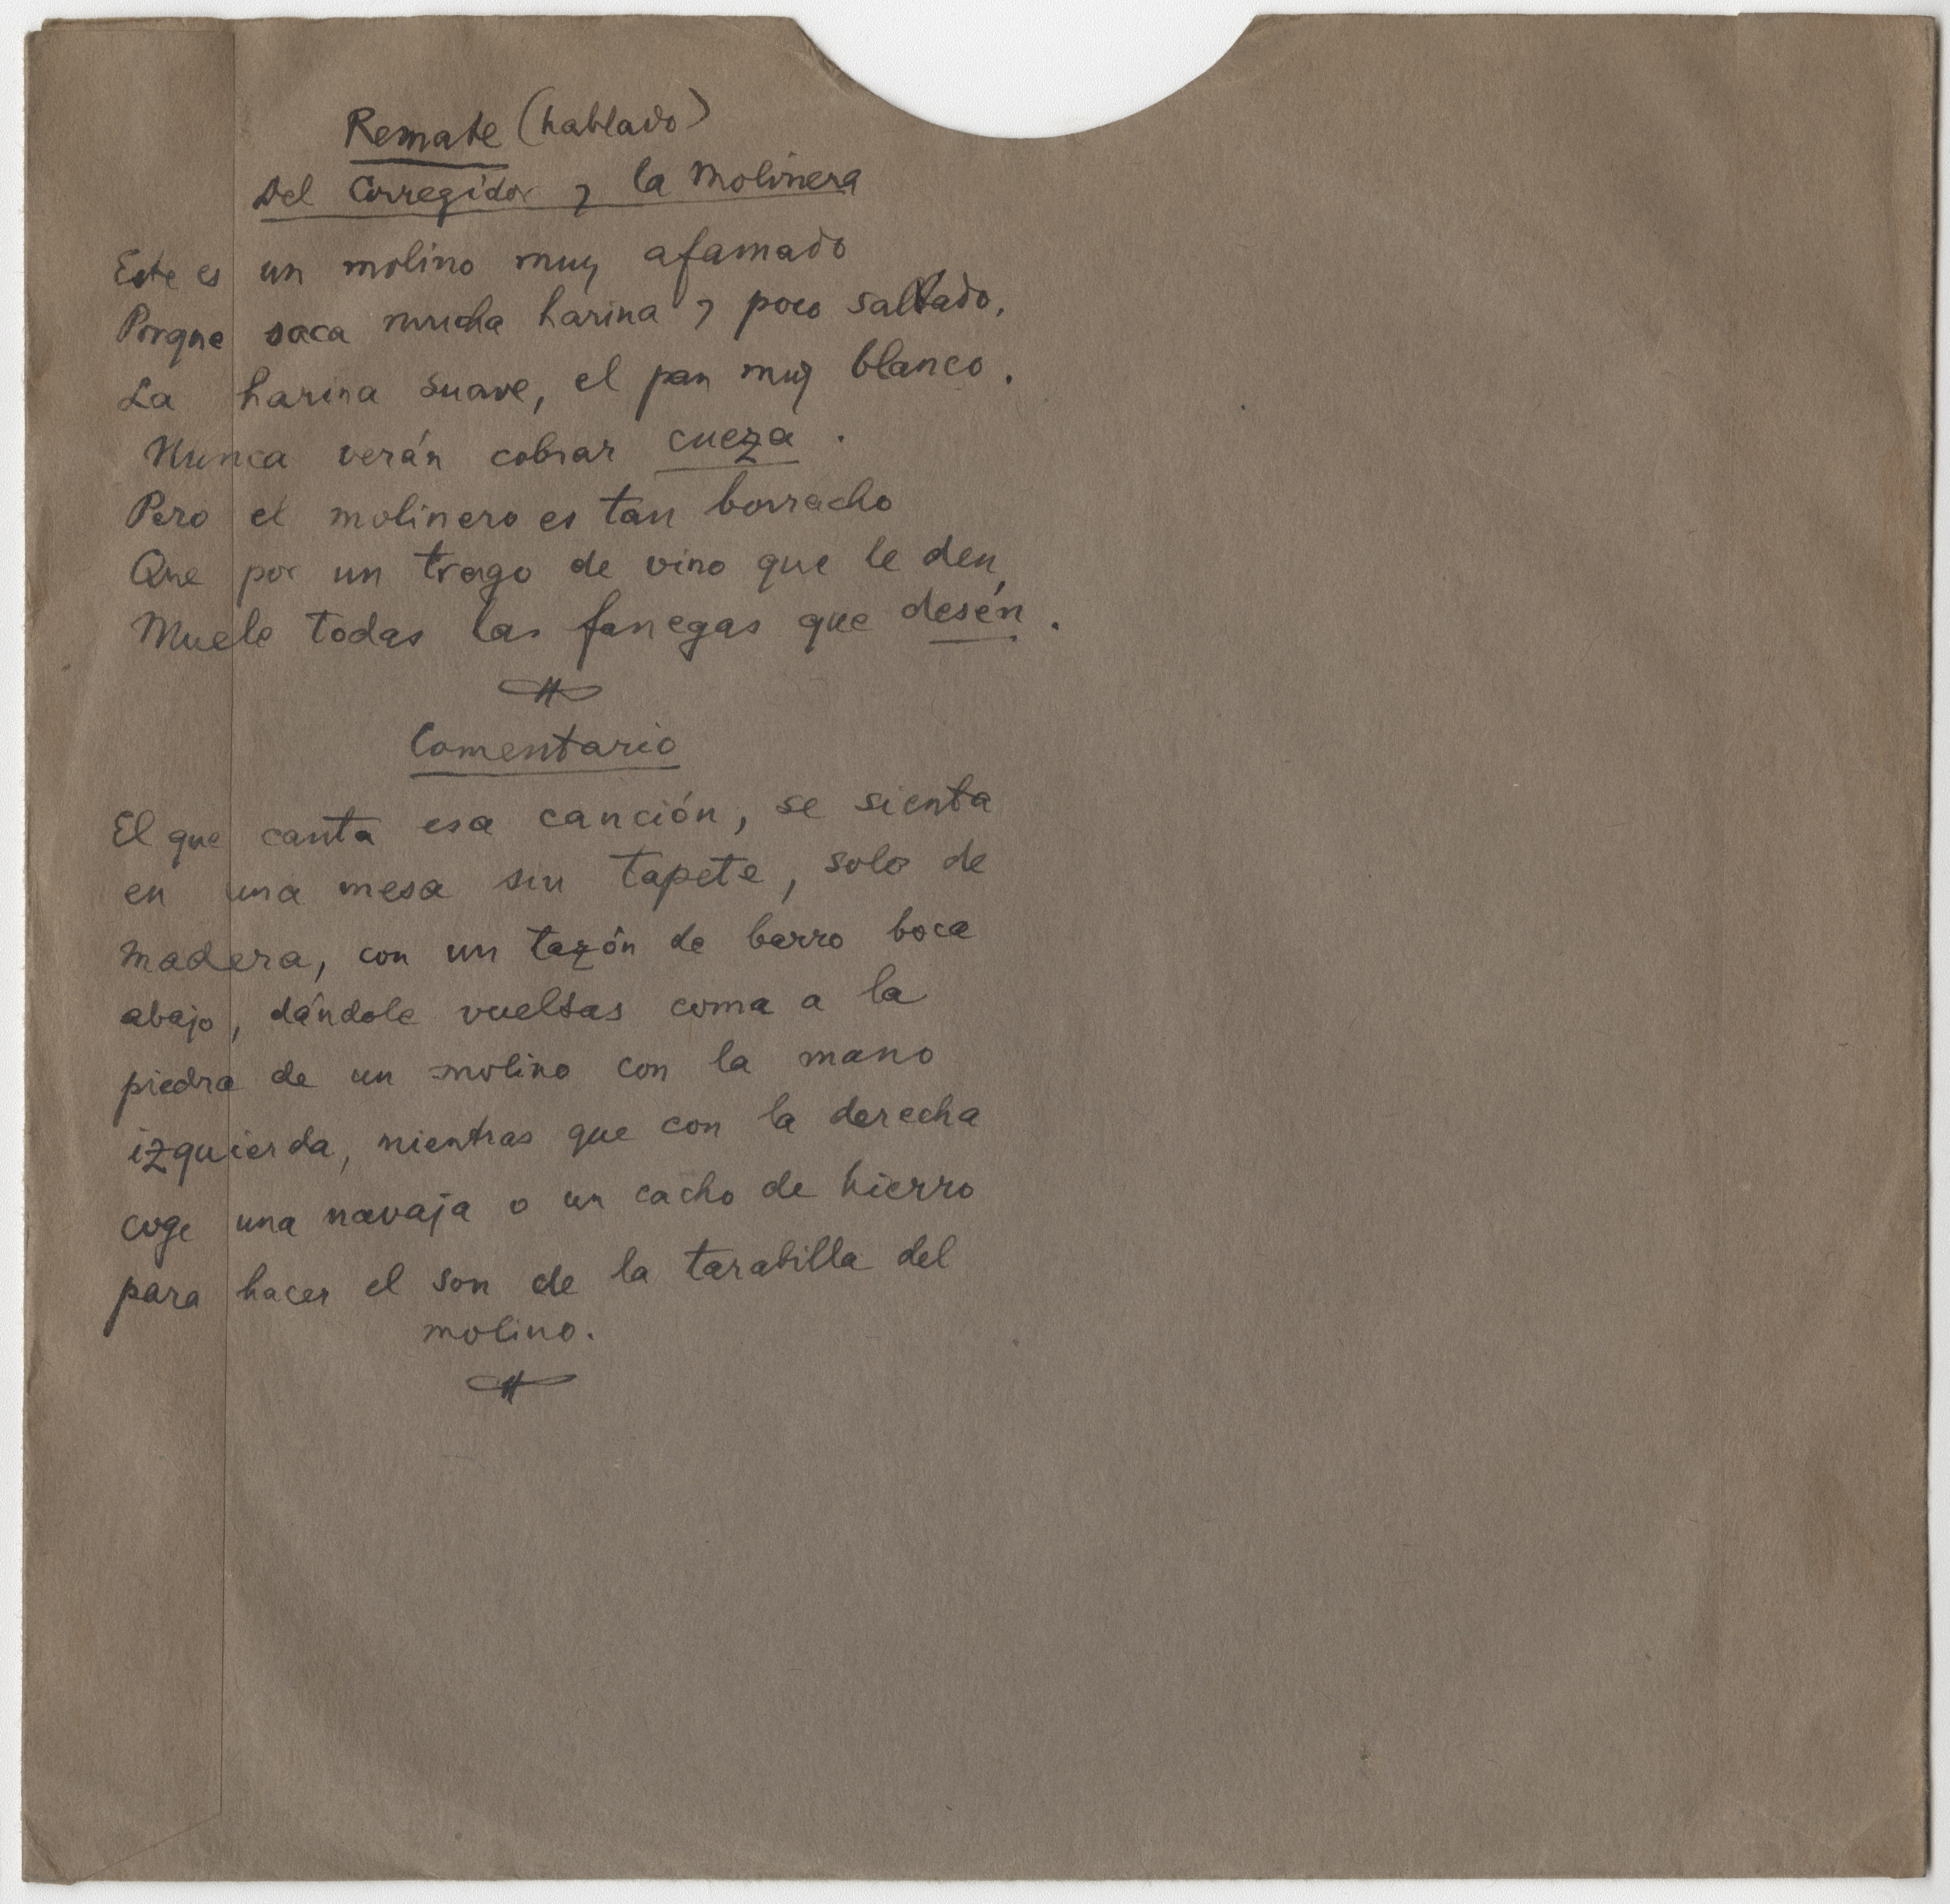 Remate (hablado)
Del Corregidor y la Molinera
Este es un molino muy afamado
Porque saca mucha harina y poco salvado.
La harina suave, el pan muy blanco.
Nunca verán cobrar cueza.
Pero el molinero es tan borracho
Que por un trago de vino que le den,
Muele todas las fanegas que desén.
Comentario
El que canta esa canción, se sienta
en una mesa sin tapete, solo de
madera, con un tazón de barro boca
abajo, dándole vueltas coma a la
piedra de un molino con la mano
izquierda, mientras que con la derecha
coge una navaja o un cacho de hierro
para hacer el son de la tarabilla del
molino.